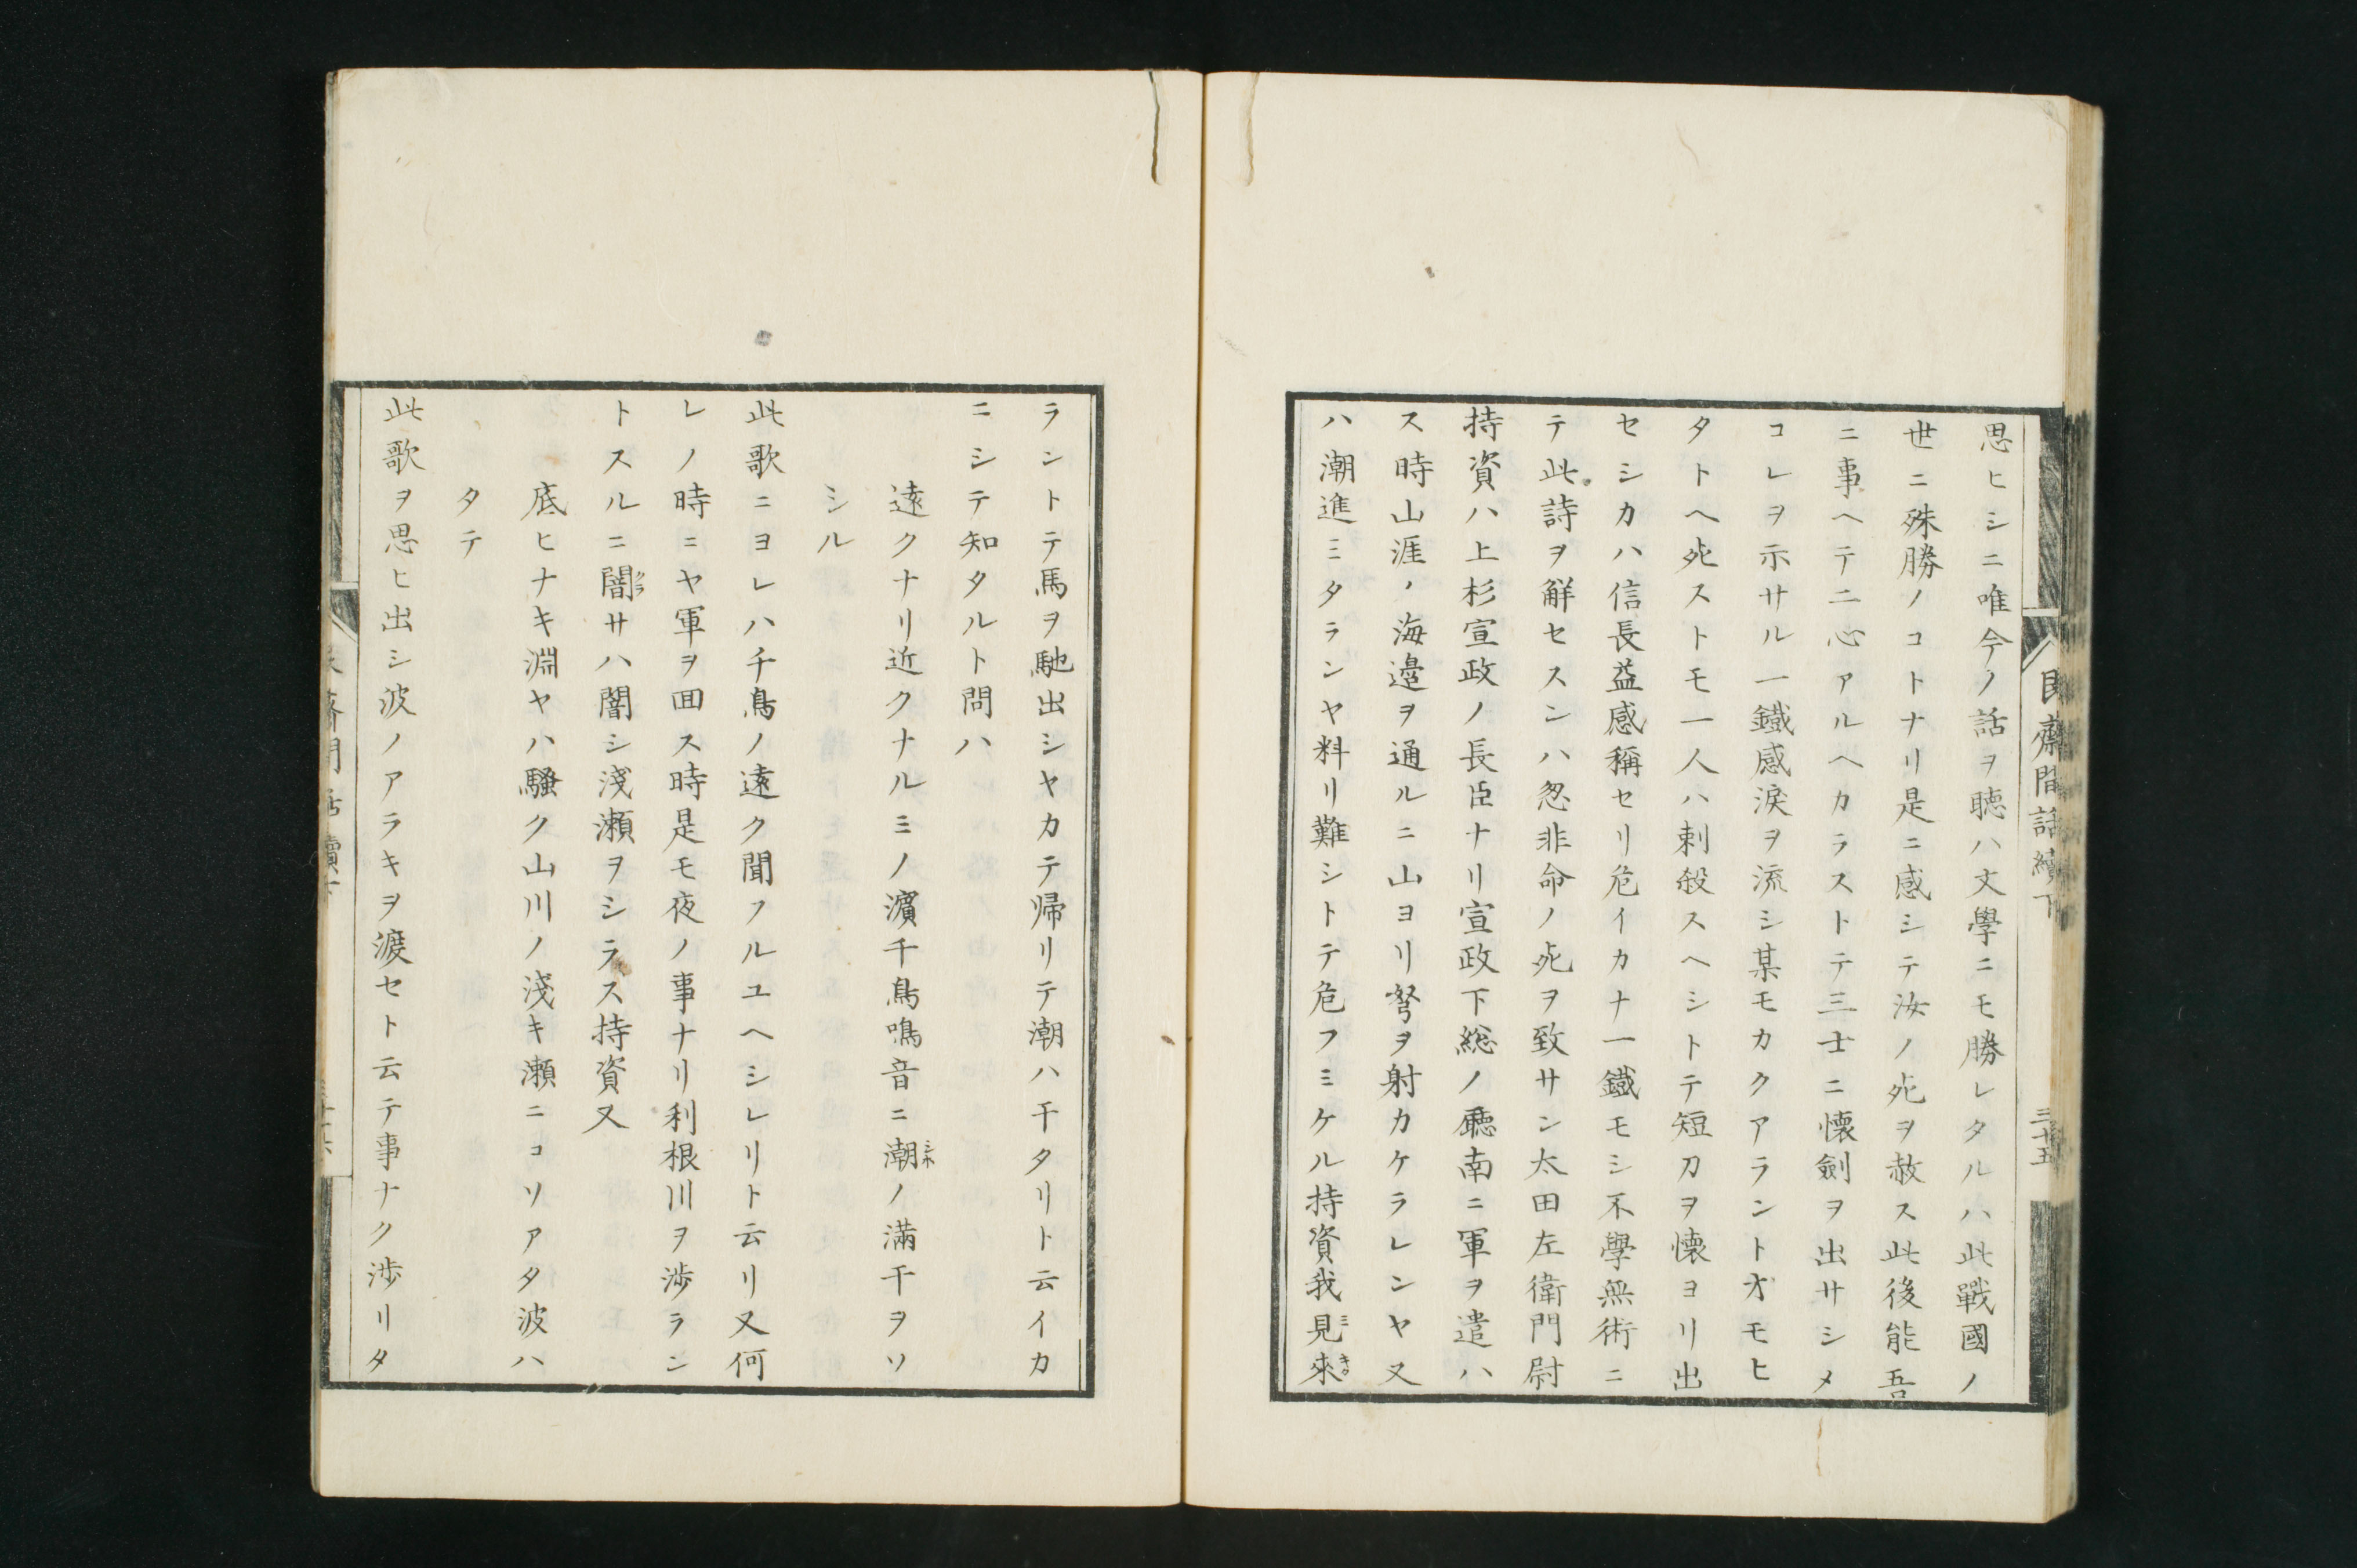 思ヒシニ唯今ノ話ヲ聴ハ文學ニモ勝レタルハ此戰國ノ
世ニ殊勝ノコトナリ是ニ感シテ汝ノ死ヲ赦ス此後能吾
ニ事ヘテ二心アルヘカラストテ三士ニ懷劍ヲ出サシメ
コレヲ示サル一鐵感涙ヲ流シ某モカクアラントオモヒ
タトヘ死ストモ一人ハ刺殺スヘシトテ短刀ヲ懷ヨリ出
セシカハ信長益感稱セリ危イカナ一鐵モシ不學無術ニ
テ此詩ヲ解セスンハ忽非命ノ死ヲ致サン太田左衛門尉
持資ハ上杉宣政ノ長臣ナリ宣政下総ノ廳南ニ軍ヲ遣ハ
ス時山涯ノ海邉ヲ通ルニ山ヨリ弩ヲ射カケラレンヤ又
ハ潮進ミタランヤ料リ難シトテ危フミケル持資我見來
ラントテ馬ヲ馳出シヤカテ帰リテ潮ハ干タリト云イカ
ニシテ知タルト問ハ
遠クナリ近クナルミノ濵千鳥鳴音ニ潮ノ満干ヲソ
シル
此歌ニヨレハ千鳥ノ遠ク聞フルユヘシレリト云リ又何
レノ時ニヤ軍ヲ回ス時是モ夜ノ事ナリ利根川ヲ渉ラン
トスルニ闇サハ闇シ淺瀬ヲシラス持資又
底ヒナキ淵ヤハ騒ク山川ノ淺キ瀬ニコソアタ波ハ
タテ
此歌ヲ思ヒ出シ波ノアラキヲ渡セト云テ事ナク渉リタ
艮齋間話續下
三十五